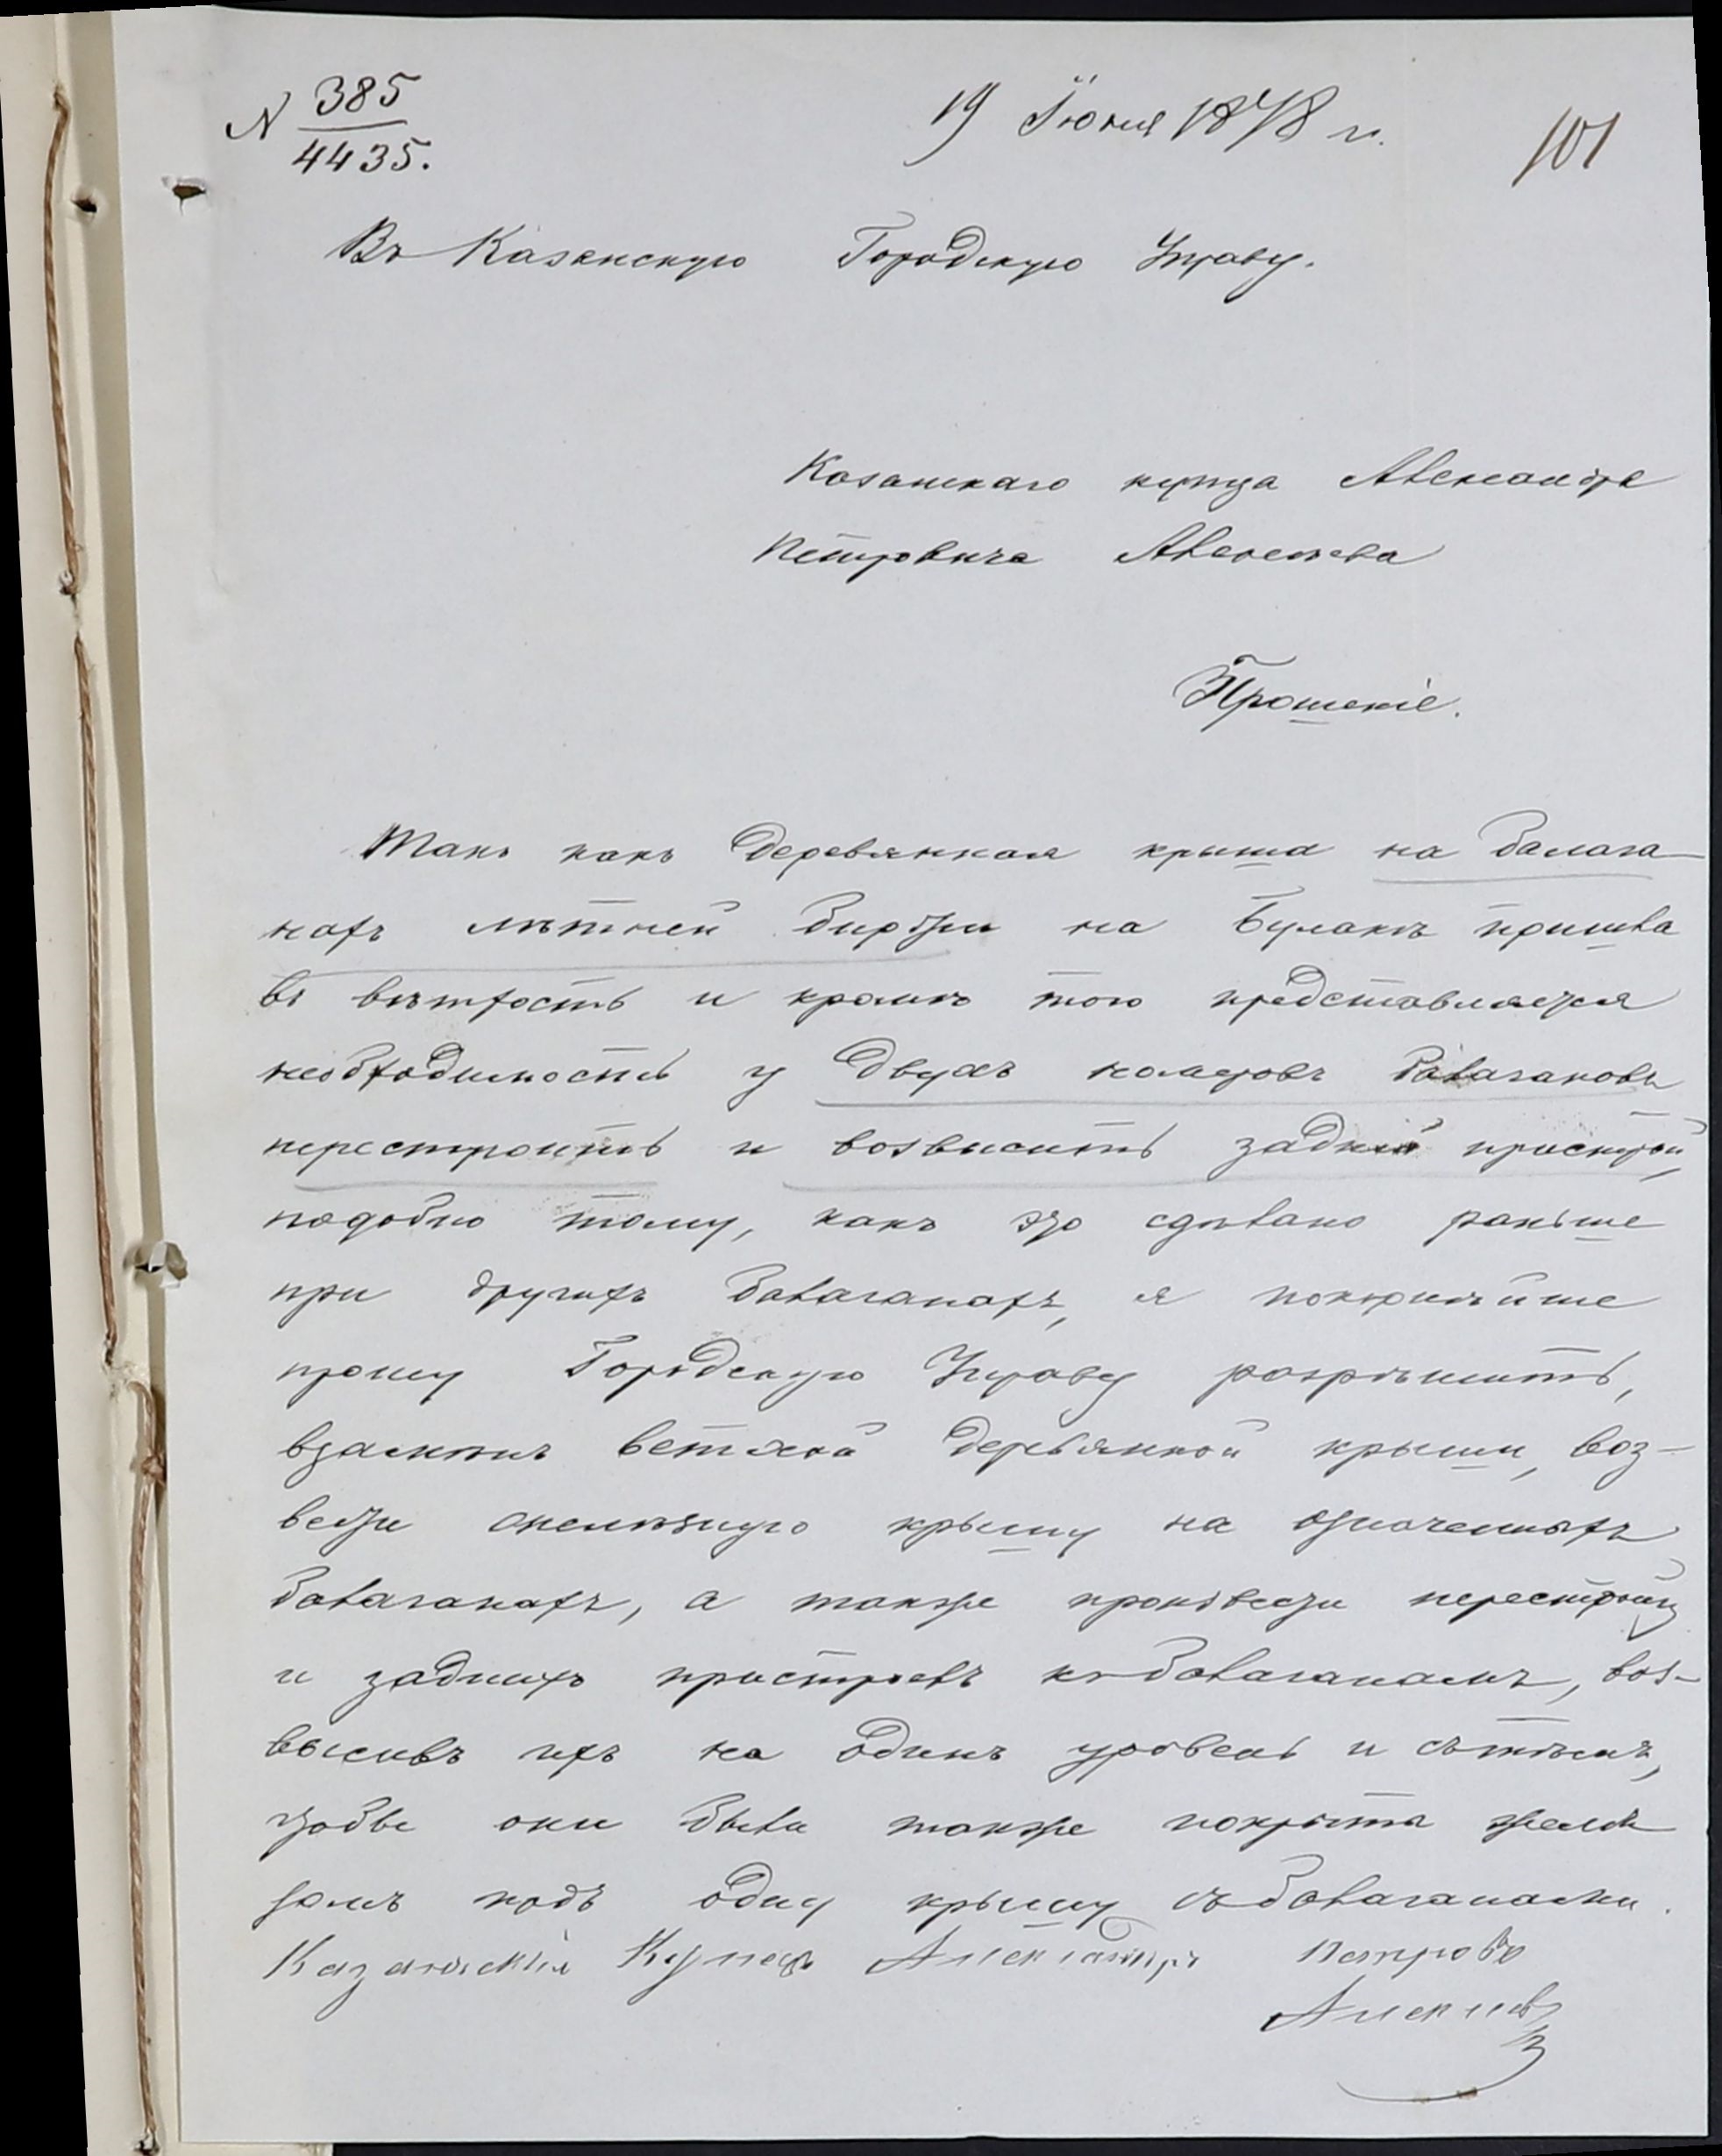 N 385
4435.
19 Іюня 1878 г.
101
Въ Казанскую Городскую Управу.
Казанскаго купца Александра
Петровича Алексеева
Прошеніе.
Такъ какъ деревянная крыша на балага-
нахъ лѣтней биржи на Булакѣ пришла
въ вѣтхость и кромѣ того представляется
необходимость у двухъ номеровъ балагановъ
перестроить и возвысить задній пристрой,
подобно тому, какъ это сдѣлано раньше
при другихъ балаганахъ, я покорнѣйше
прошу Городскую Управу разрѣшить,
взамѣнъ ветхой деревянной крыши, воз-
вести желѣзную крышу на означенныхъ
балаганахъ, а также произвести перестройку
и заднихъ пристроевъ къ балаганамъ, воз-
высивъ ихъ на одинъ уровень и съ тѣмъ,
чтобы они были также покрыты желѣ
зомъ подъ одну крышу съ балаганами.
Казанскій Купецъ Александръ Петровъ
Алексеевъ